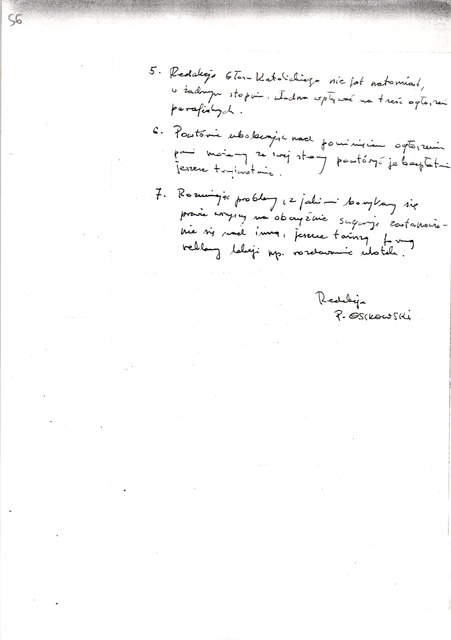 56
5. Redakcja Głosu Katolickiego nie jest natomiast,
w żadnym stopniu władna wpływać na treść ogłoszeń
parafialnych.
6. Powtórnie ubolewając nad pominięciem ogłoszenia
pani możemy ze swej strony powtórzyć je bezpłatnie
jeszcze trzykrotnie.
7. Rozumiejąc problemy, z jakimi borykamy się
prawie wszyscy na obczyźnie sugeruję zastanowie-
nie się nad inną, jeszcze tańszą formą
reklamy lekcji np. rozdawanie ulotek.
Redakcja
P. OSIKOWSKI